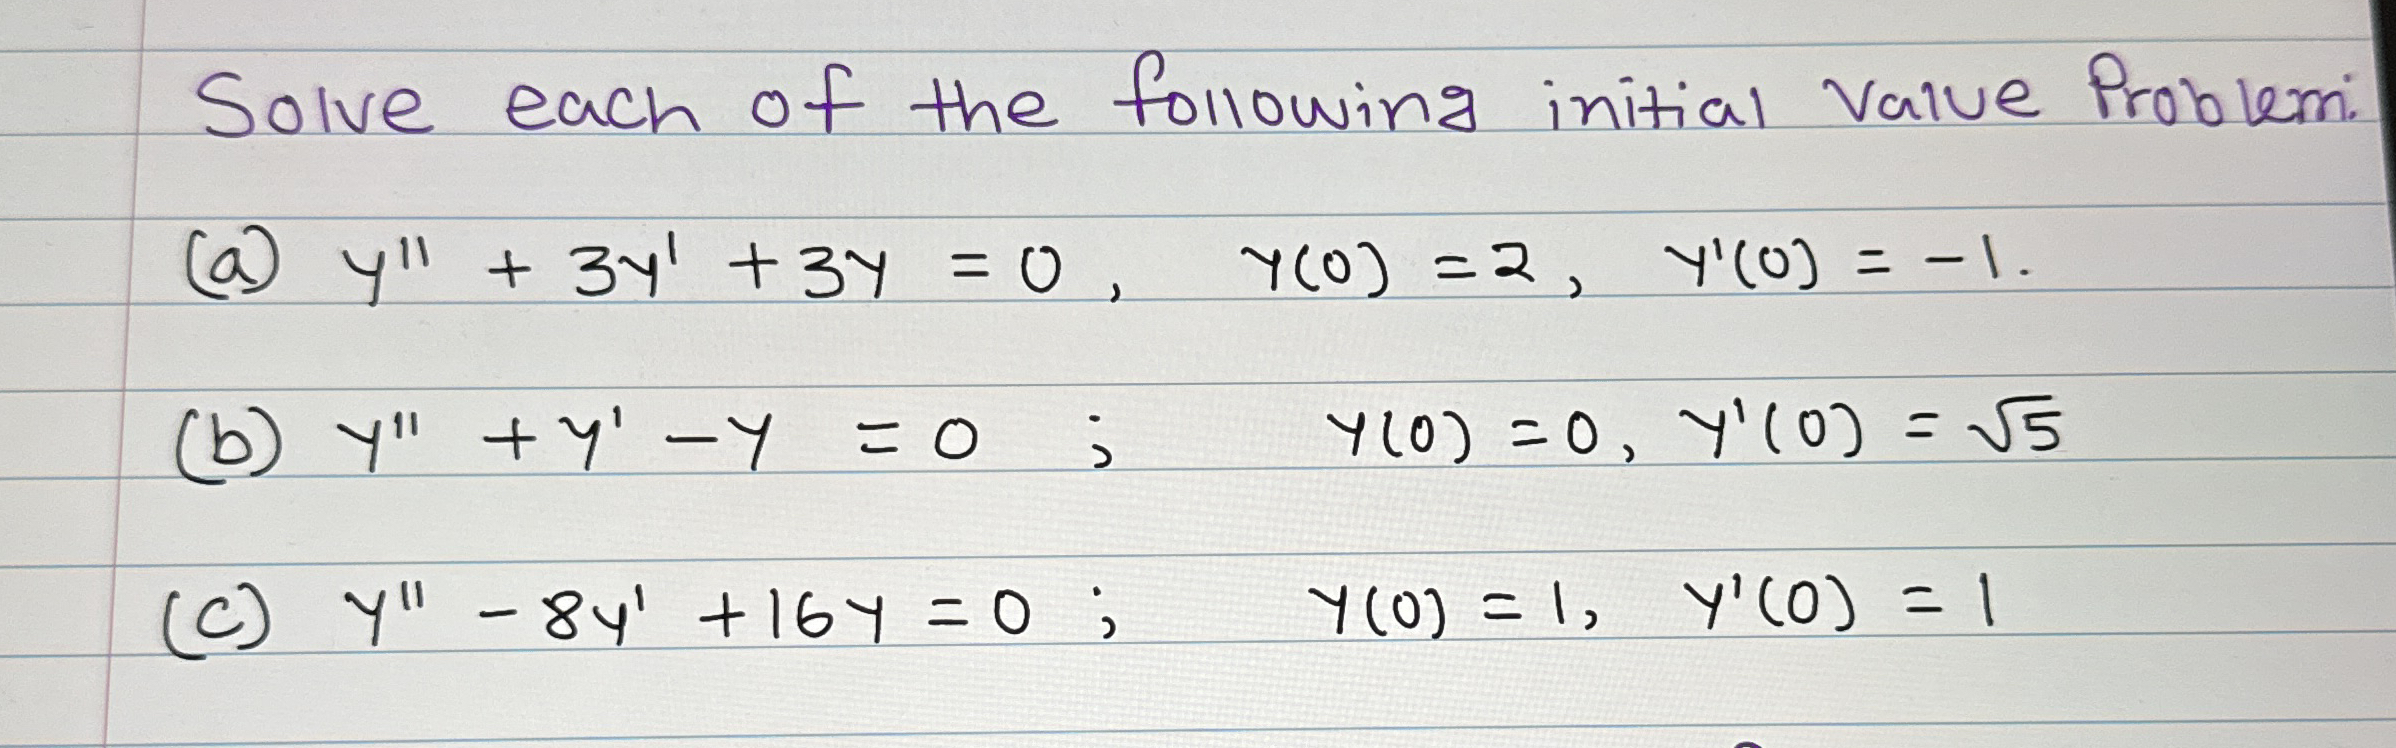 Solve each of the following initial value Problem.
(a) y'' + 3y' + 3y = 0, y(0) = 2, y'(0) = -1.
(b) y'' + y' - y = 0 ; y(0) = 0, y'(0) = √5
(c) y'' - 8y' + 16y = 0 ; y(0) = 1, y'(0) = 1